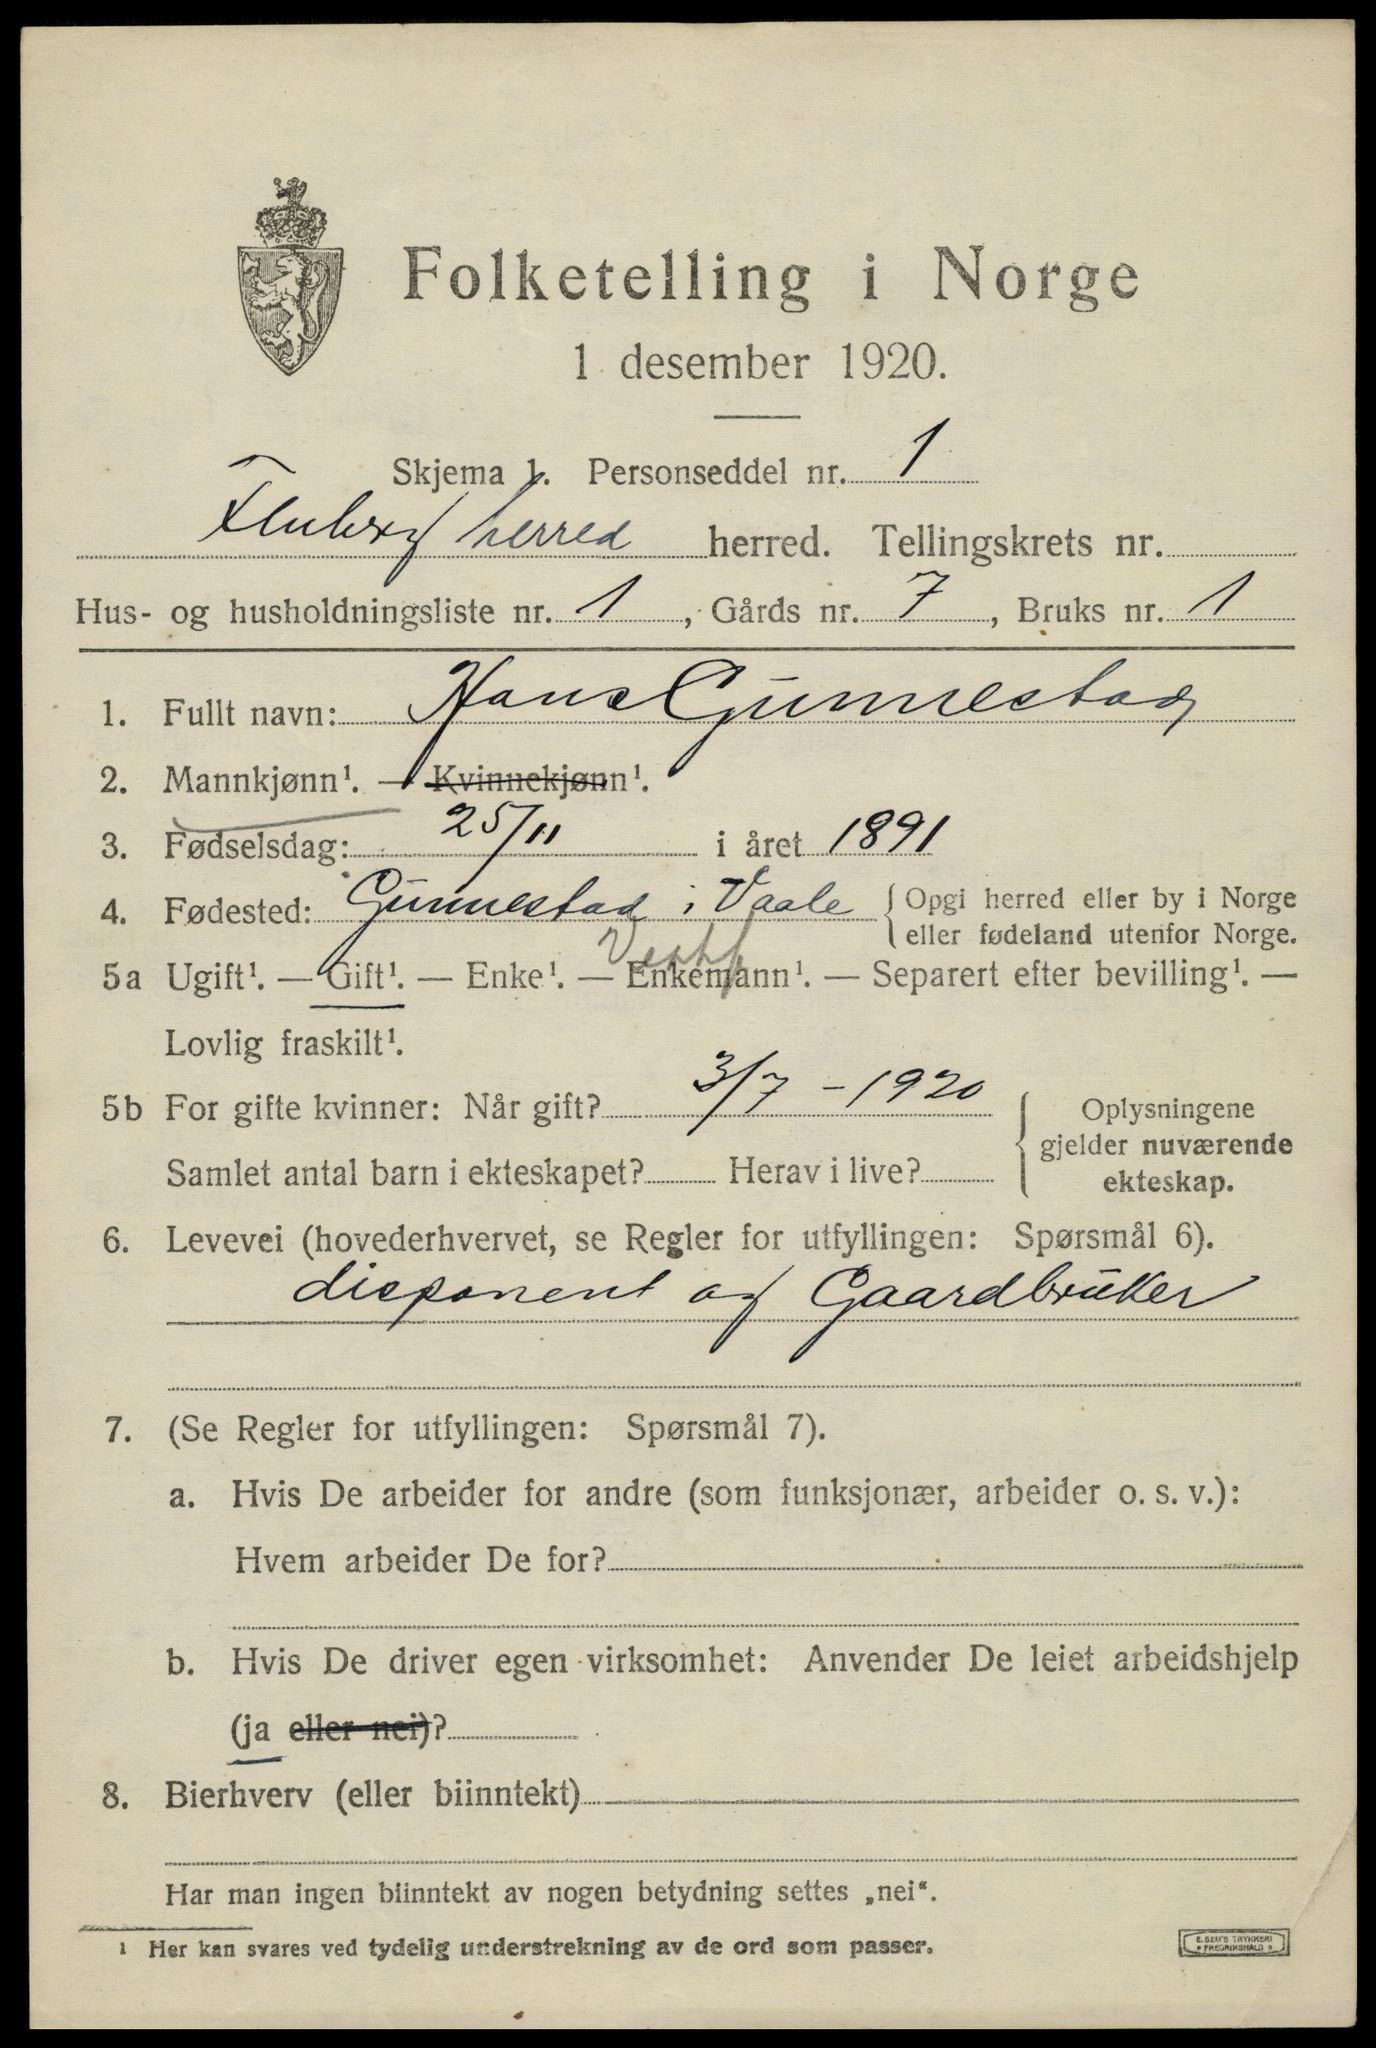 Folketelling i Norge
1 desember 1920.
Skjema 1. Personseddel nr. 1
Fluberg herred herred. Tellingskrets nr.
Hus- og husholdningsliste nr. 1, Gårds nr. 7, Bruks nr. 1
1. Fullt navn: Hans Gunnestad
2. Mannkjønn¹. — Kvinnekjønn¹.
3. Fødselsdag: 25/11 i året 1891
4. Fødested: Gunnestad i Vaale { Opgi herred eller by i Norge
eller fødeland utenfor Norge.
Vestf
5a Ugift¹. — Gift¹. — Enke¹. — Enkemann¹. — Separert efter bevilling¹. —
Lovlig fraskilt¹.
5b For gifte kvinner: Når gift? 3/7 - 1920
Samlet antal barn i ekteskapet? Herav i live?
{ Oplysningene
gjelder nuværende
ekteskap.
6. Levevei (hovederhvervet, se Regler for utfyllingen: Spørsmål 6).
disponent og Gaardbruker
7. (Se Regler for utfyllingen: Spørsmål 7).
a. Hvis De arbeider for andre (som funksjonær, arbeider o. s. v.):
Hvem arbeider De for?
b. Hvis De driver egen virksomhet: Anvender De leiet arbeidshjelp
(ja eller nei)?
8. Bierhverv (eller biinntekt)
Har man ingen biinntekt av nogen betydning settes „nei".
¹ Her kan svares ved tydelig understrekning av de ord som passer.
E. SEM'S TRYKKERI
* FREDRIKSHALD *